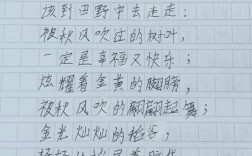 该到田野中去走走：
被秋风吹过的树叶，
一定是幸福又快乐；
炫耀着金黄的翅膀，
被秋风吹的翩翩起舞；
金光灿灿的稻谷，